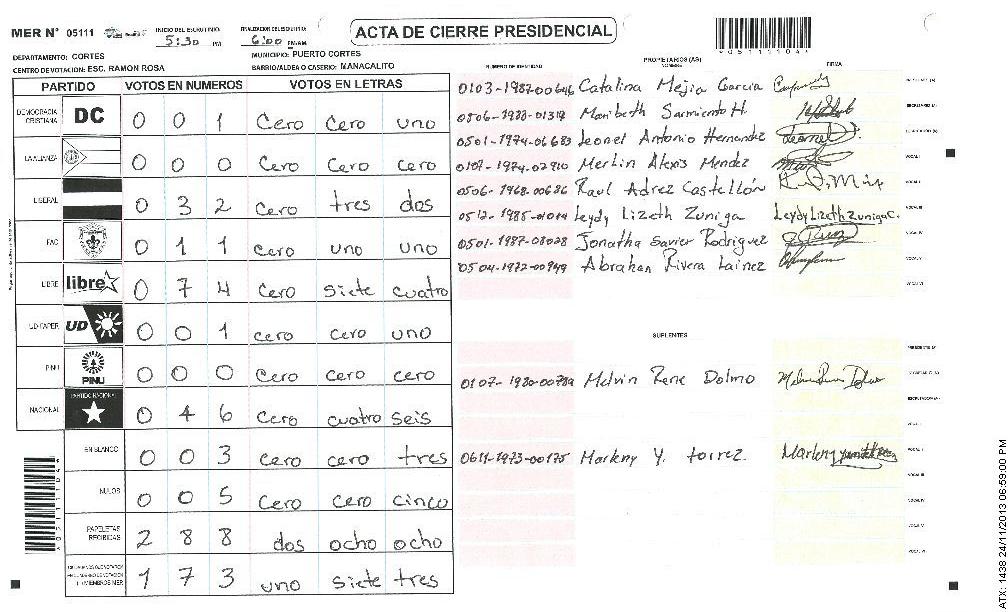 MER N° 05111
INICIO DEL ESCRUTINIO:
5:30 PM
FINALIZACION DEL ESCRUTINIO:
6:00 PM/AM
ACTA DE CIERRE PRESIDENCIAL
DEPARTAMENTO: CORTES
MUNICIPIO: PUERTO CORTES
CENTRO DE VOTACION: ESC. RAMON ROSA
BARRIO/ALDEA O CASERIO: MANACALITO
PARTIDO VOTOS EN NUMEROS VOTOS EN LETRAS
DEMOCRACIA CRISTIANA DC 0 0 1 Cero Cero uno
LA ALIANZA 0 0 0 Cero Cero Cero
LIBERAL 0 3 2 Cero tres dos
PAC 0 1 1 Cero uno uno
LIBRE libre 0 7 4 Cero siete cuatro
UD-FAPER UD 0 0 1 cero cero uno
PINU PINU 0 0 0 Cero cero cero
NACIONAL PARTIDO NACIONAL 0 4 6 Cero cuatro seis
EN BLANCO 0 0 3 Cero cero tres
NULOS 0 0 5 Cero cero cinco
PAPELETAS RECIBIDAS 2 8 8 dos ocho ocho
1 7 3 uno siete tres
NUMERO DE IDENTIDAD
PROPIETARIOS (AS)
NOMBRE
FIRMA
0103-1987-00646 Catalina Mejia Garcia
0506-1988-01319 Maribeth Sarmiento H.
0501-1974-06683 Leonel Antonio Hernandez Leonel
0107-1974-02910 Merlin Alexis Mendez
0506-1968-00686 Raul Adrez Castellón
0512-1985-01014 Leydy Lizeth Zuniga Leydy Lizeth Zuniga C.
0501-1987-08028 Jonatha Savier Rodriguez
0504-1972-00949 Abrahan Rivera Lainez
SUPLENTES
0107-1980-00789 Melvin Rene Dolmo
0611-1973-00175 Markny Y. torrez Markny
ATX: 1438 24/11/2013 06:59:00 PM